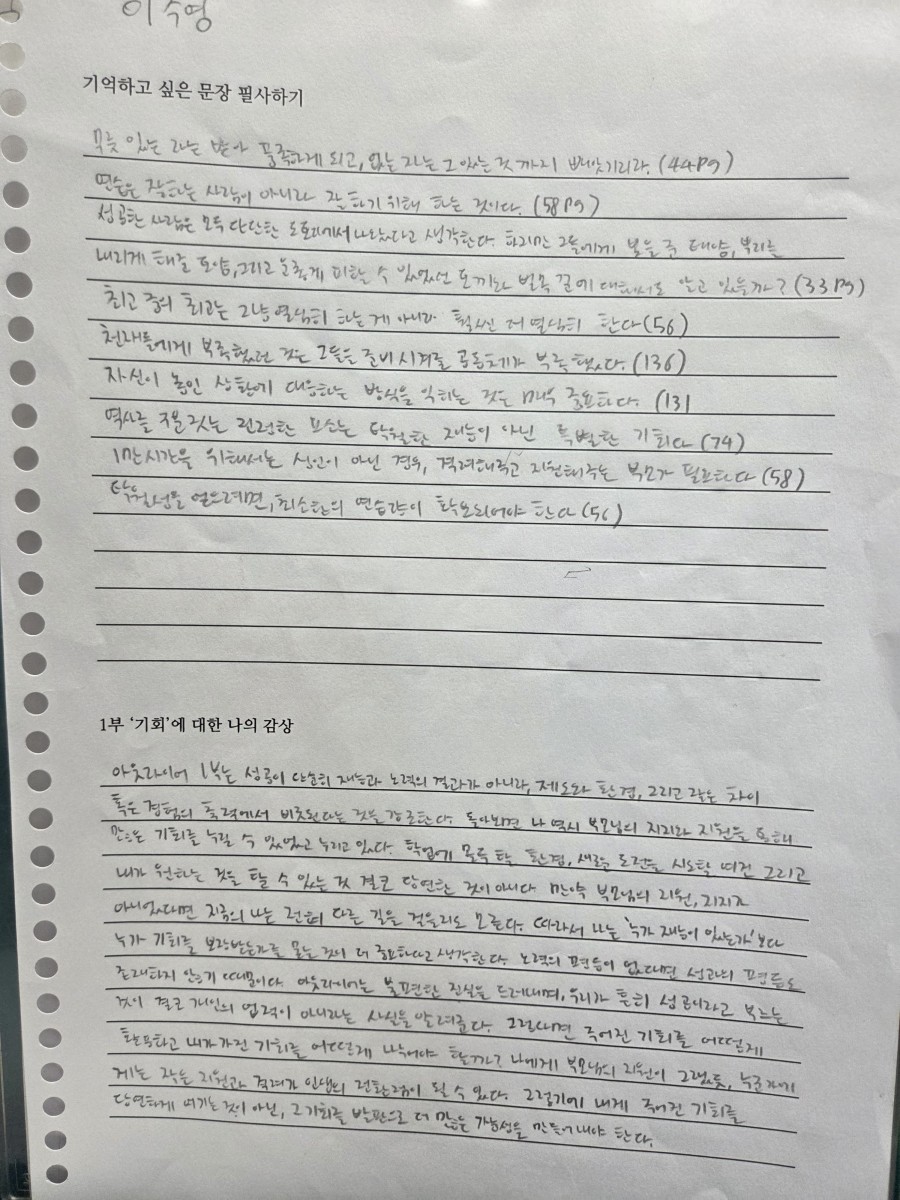 이수영
기억하고 싶은 문장 필사하기
무릇 있는 자는 받아 풍족하게 되고, 없는 자는 그 있는 것 까지 빼앗기리라. (44pg)
연습은 잘하는 사람이 아니라 잘 하기 위해 하는 것이다. (58pg)
성공한 사람은 모두 단단한 도토리에서 나왔다고 생각한다. 하지만 그들에게 빛을 준 태양, 뿌리를
내리게 해준 토양, 그리고 운좋게 피할 수 있었던 토끼와 벌목꾼에 대해서도 알고 있을까? (33pg)
최고 중의 최고는 그냥 열심히 하는 게 아니라 훨씬 더 열심히 한다 (56)
천재들에게 부족했던 것은 그들을 준비시켜줄 공동체가 부족했다. (136)
자신이 놓인 상황에 대응하는 방식을 익히는 것은 매우 중요하다. (131
역사를 구분 짓는 진정한 요소는 탁월한 재능이 아닌 특별한 기회다 (74)
1만시간을 위해서는 성인이 아닌 경우, 격려해주고 지원해주는 부모가 필요하다 (58)
탁월성을 얻으려면, 최소한의 연습량이 확보되어야 한다 (56)
1부 '기회'에 대한 나의 감상
아웃라이어 1부는 성공이 단순히 재능과 노력의 결과가 아니라, 제도와 환경, 그리고 작은 차이
혹은 경험의 축적에서 비롯된다는 것을 강조한다. 돌아보면 나 역시 부모님의 지지와 지원을 통해
많은 기회를 누릴 수 있었고 누리고 있다. 학업에 몰두할 환경, 새로운 도전을 시도할 여건 그리고
내가 원하는 것을 할 수 있는 것 결코 당연한 것이 아니다. 만약 부모님의 지원, 지지가
아니었다면 지금의 나는 전혀 다른 길을 걸을지도 모른다. 따라서 나는 '누가 재능이 있는가' 보다
누가 기회를 보장받는가를 묻는 것이 더 중요하다고 생각한다. 노력의 평등이 없다면 성과의 평등도
존재하지 않기 때문이다. 아웃라이어는 불편한 진실을 드러내며, 우리가 흔히 성공이라고 부르는
것이 결코 개인의 업적이 아니라는 사실을 알려준다. 그렇다면 주어진 기회를 어떻게
활용하고 내가 가진 기회를 어떻게 나누어야 할까? 나에게 부모님의 지원이 그랬듯, 누군가에
게는 작은 지원과 격려가 인생의 전환점이 될 수 있다. 그렇기에 내게 주어진 기회를
당연하게 여기는 것이 아닌, 그 기회를 발판으로 더 많은 가능성을 만들어내야 한다.